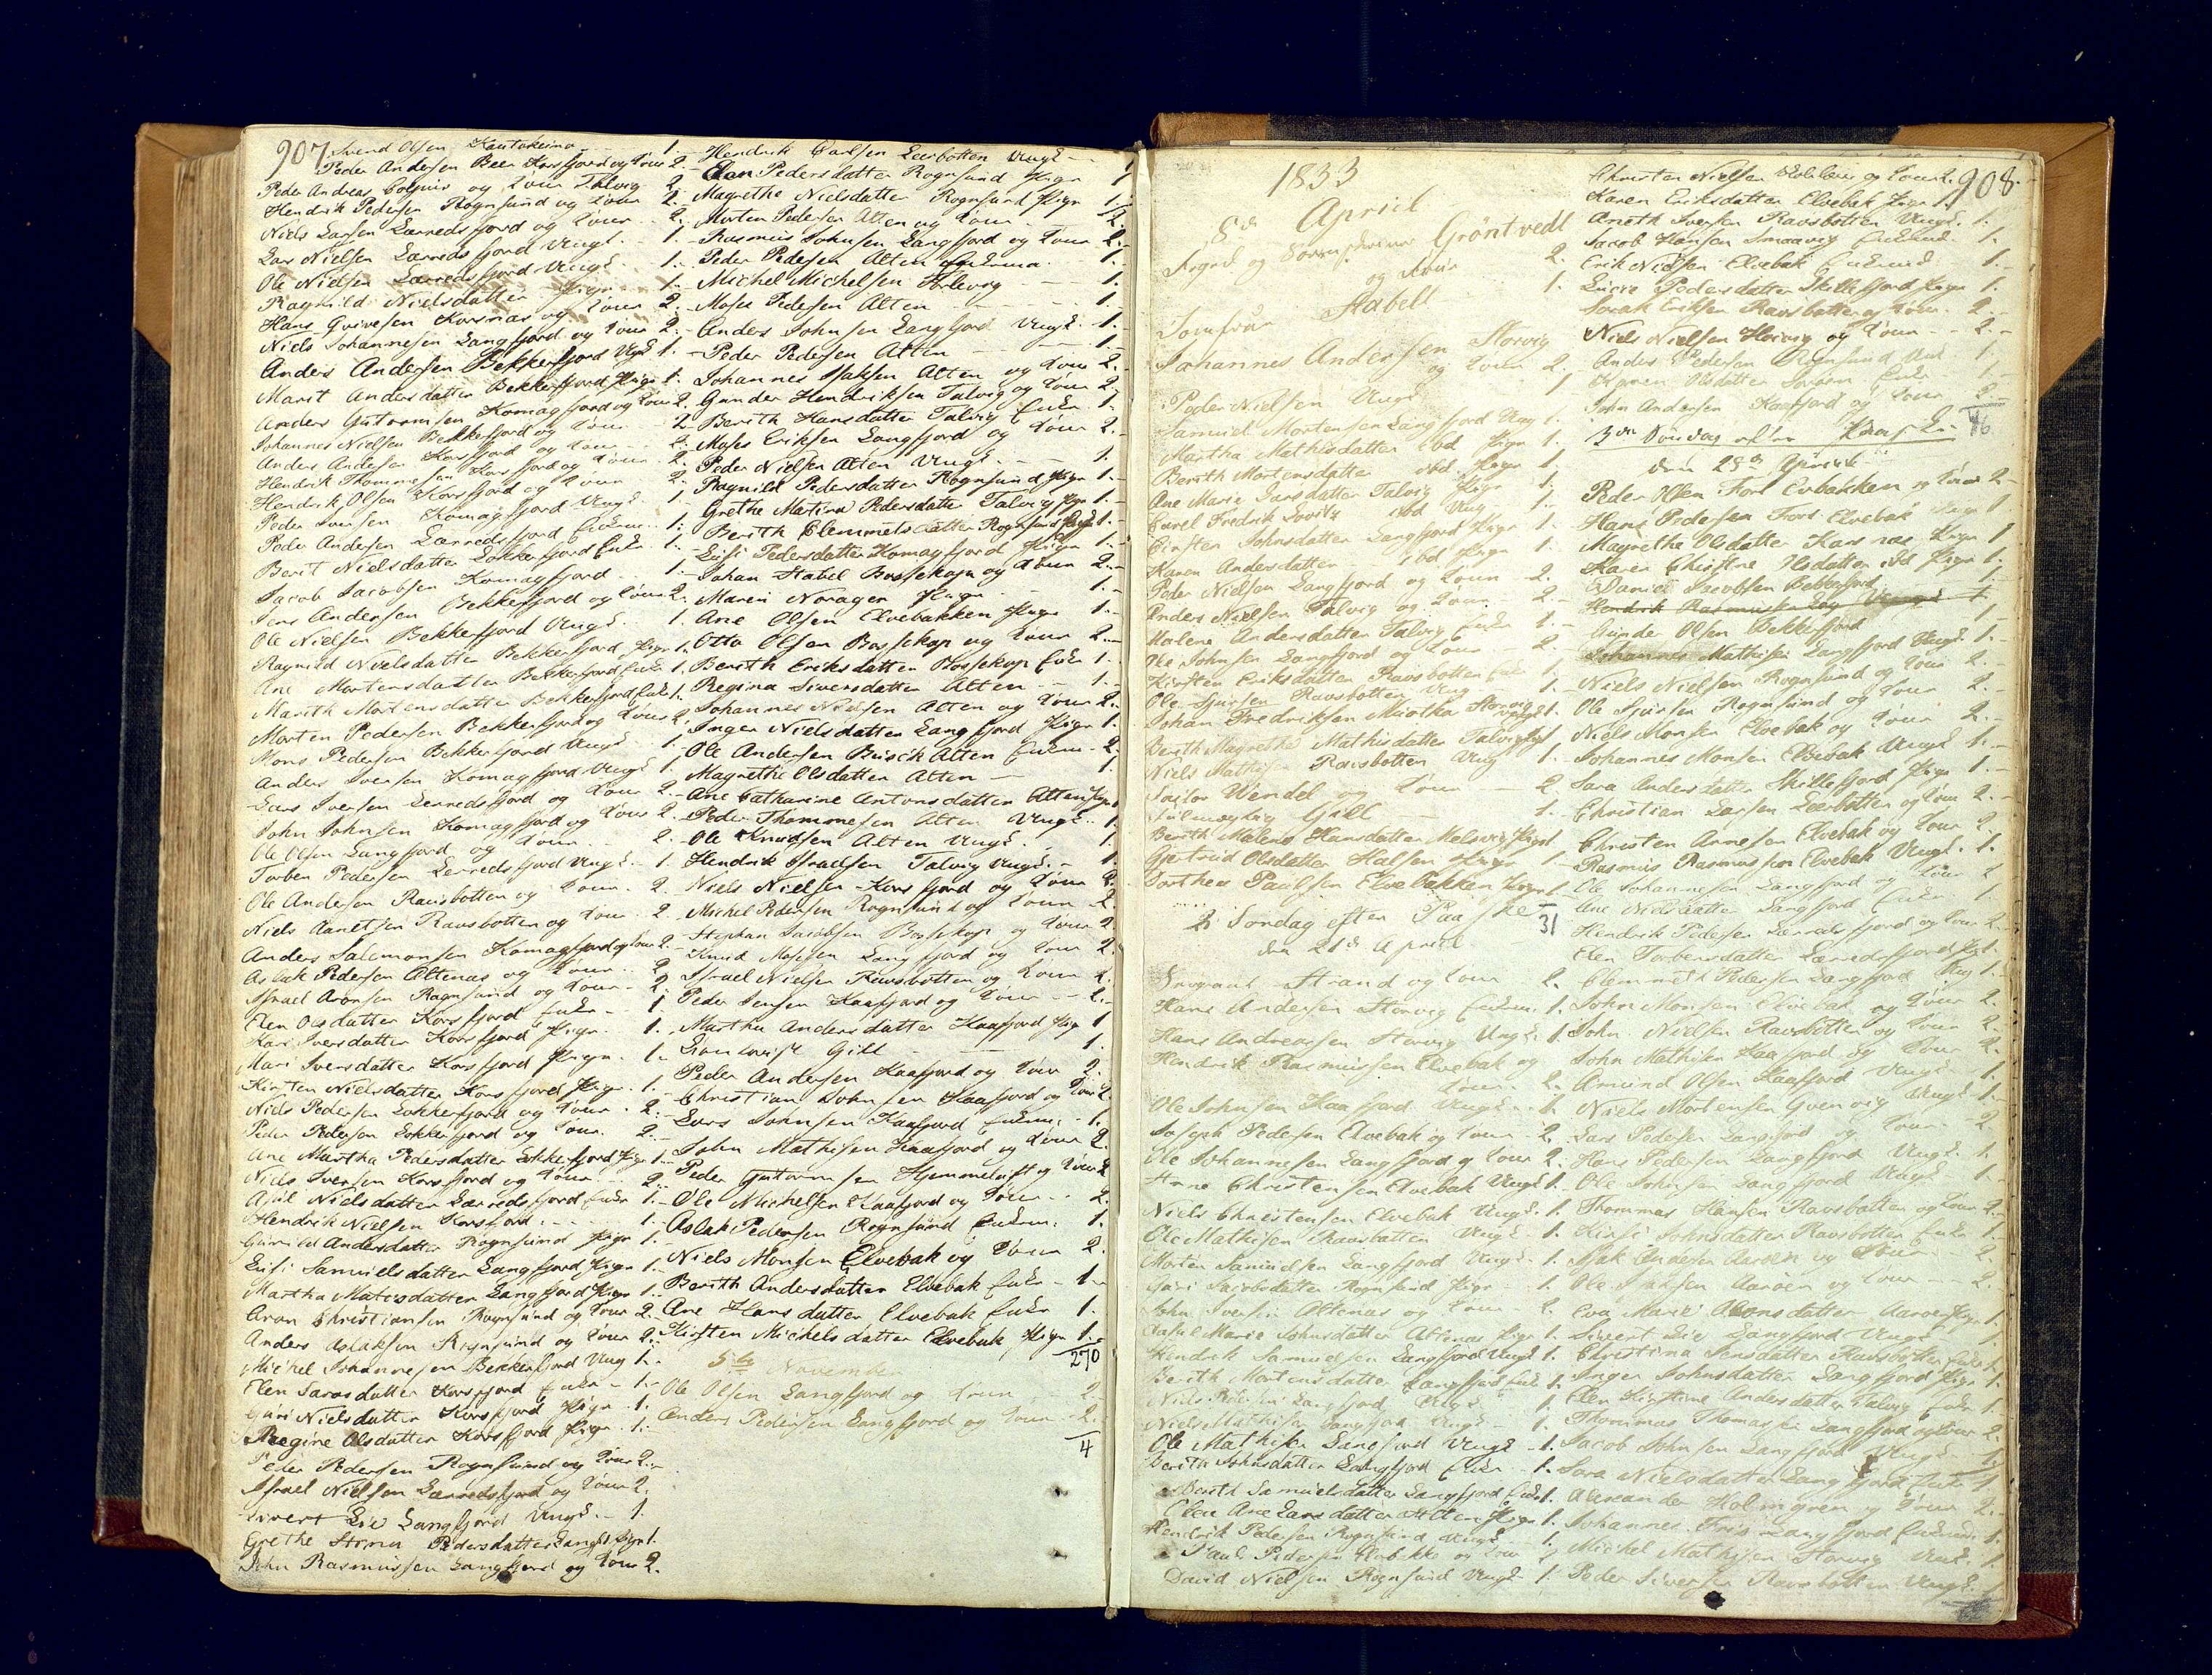 907
Svend Olsen Kautokeino 1.
Peder Andersen Beer Korsfjord og Kone 2
Peder Andreas og Kone Talvig 2
Hendrik Pedersen Rognsund og Kone 2.
Niels Larsen Lærredsfjord og Kone 2.
Lars Nielsen Lærredsfjord Ungk. 1.
Ole Nielsen Lærredsfjord Ungk. 1.
Ragnild Nielsdatter Pige 1.
Hans Korsnæs og Kone 2.
Niels Johannesen Langfjord og Kone 2.
Anders Andersen Bekkerfjord Ungk 1.
Marit Andersdatter Bekkerfjord Pige 1.
Anders Guttormsen Komagfjord og Kone 2.
Johannes Nielsen Bekkerfjord og Kone 2
Anders Andersen Korsfjord og Kone 2.
Hendrik Thommesen Korsfjord og Kone 2.
Hendrik Olsen Korsfjord og Kone 2.
Peder Iversen Komagfjord Ungk. 1
Peder Andersen Lærredsfjord Enkem. 1.
Berit Nielsdatter Lokkerfjord Enke 1.
Jacob Jacobsen Komagfjord 1.
Jens Andersen Bekkerfjord og Kone 2.
Ole Nielsen Bekkerfjord Ungk. 1.
Ragnild Nielsdatter Bekkerfjord Pige 1.
Ane Mortensdatter Bekkerfjord Enke 1.
Marith Mortensdatter Bekkerfjord Enke 1.
Morten Pedersen Bekkerfjord og Kone 2.
Mons Pedersen Bekkerfjord Ungk 1.
Anders Iversen Komagfjord Ungk 1.
Lars Iversen Lerredsfjord og Kone 2.
John Johnsen Komagfjord og Kone 2.
Ole Olsen Langfjord og Kone 2.
Torben Pedersen Lerredsfjord Ungk. 1.
Ole Andersen Ravsbotten og Kone 2.
Niels Ravsbotten og Kone 2
Anders Salamonsen Komagfjord og Kone 2.
Aslak Pedersen Altenæs og Kone 2
Israel Aronsen Rognsund og Kone 2
Elen Olsdatter Korsfjord Enke 1
Kari Iversdatter Korsfjord Pige 1.
Mari Iversdatter Korsfjord Pige 1.
Kirsten Nielsdatter Korsfjord Pige 1.
Niels Pedersen Lokkerfjord og Kone 2.
Peder Pedersen Lokkerfjord og Kone 2.
Ane Martha Pedersdatter Lokkerfjord Pige 1.
Niels Iversen Korsfjord og Kone 2.
Nielsdatter Lærredsfjord Enke 1.
Hendrik Nielsen Korsfjord 1.
Gunild Andersdatter Rognsund Pige 1.
Samuelsdatter Langfjord Pige 1.
Martha Matisdatter Langfjord Pige 1.
Aron Christiansen Rognsund og Kone 2
Anders Aslaksen Rognsund og Kone 2.
Michel Johannesen Bekkerfjord Ung 1.
Elen Larsdatter Korsfjord Enke 1.
Guri Nielsdatter Korsfjord Pige 1.
Regine Olsdatter Korsfjord Pige 1.
Peder Pedersen Rognsund og Kone 2.
Israel Nielsen Lærredsfjord og Kone 2.
Sivert Lie Langfjord Ungk. 1.
Grethe Stina Pedersdatter Langf. Pige 1.
John Rasmussen Langfjord og Kone 2.
Hendrik Carlsen Leerbotten Ungk 1
Elen Pedersdatter Rognsund Pige 1
Magrethe Nielsdatter Rognsund Pige 1.
Morten Pedersen Alten og Kone 2.
Rasmus Johnsen Langfjord og Kone 2.
Peder Pedersen Alten Enkem. 1.
Michel Michelsen 1.
Moses Pedersen Alten 1.
Anders Johnsen Langfjord Ungk. 1.
Peder Pedersen Alten 1.
Johannes Isaksen Alten og Kone 2.
Gunder Hendriksen Talvig og Kone 2.
Berith Hansdatter Talvig Enke 1.
Moses Eriksen Langfjord og Kone 2.
Peder Nielsen Alten Ungk. 1.
Ragnild Pedersdatter Rognsund Pige 1.
Grethe Martina Pedersdatter Talvig Pige 1.
Berith Clemmetsdatter Rognsund Pige 1.
Pedersdatter Komagfjord Pige 1.
Johan Stabel Bossekop og Kone 2.
Maren Norager Pige 1.
Ane Olsen Elvebakken Pige 1.
Otto Olsen Bossekop og Kone 2.
Berith Eriksdatter Bossekop Enke 1.
Regina Siversdatter Alten 1.
Johannes Nielsen Alten og Kone 2.
Inger Nielsdatter Langfjord Pige 1.
Ole Andersen Busch Alten Enkem. 2.
Magrethe Olsdatter Alten 1.
Ane Catharine Antonsdatter Alten Pige 1
Peder Thommesen Alten Ungk. 1.
Ole Knudsen Alten Ungk. 1.
Hendrik Israelsen Talvig Ungk. 1.
Niels Nielsen Korsfjord og Kone 2.
Michel Pedersen Rognsund og Kone 2
Stephan Jacobsen Bossekop og Kone 2
Knud Mossen Langfjord og Kone 2.
Israel Nielsen Ravsbotten og Kone 2.
Peder Jensen Kaafjord og Kone 2.
Martha Andersdatter Kaafjord Pige 1
Gill 1.
Peder Andersen Kaafjord og Kone 2.
Christian Johnsen Kaafjord og Kone 2.
Lars Johnsen Kaafjord Enkem. 1.
John Mathisen Kaafjord og Kone 2.
Peder Guttormsen Hjemmeluft og Kone 2
Ole Michelsen Kaafjord og Kone 2.
Aslak Pedersen Rognsund Enkem. 1.
Niels Monsen Elvebak og Kone 2.
Berith Andersdatter Elvebak Enke 1.
Ane Hansdatter Elvebak Enke 1.
Kirsten Michelsdatter Elvebak Pige 1.
270
5te November
Ole Olsen Langfjord og Kone 2.
Anders Pedersen Langfjord og Kone 2.
4
1833
8de April
Foged og Sorenskriver Gröntvedt
og Kone 2.
Jomfrue Stabell 1.
Johannes Andersen Storvig
og Kone 2.
Peder Nielsen Ungk 1
Samuel Mortensen Langfjord Ung 1.
Martha Mathisdatter ibd Pige 1.
Berith Mortensdatter ibd. Pige 1.
Ane Marie Larsdatter Talvig Pige 1.
Carel Fredrik ibd Ung 1.
Kirsten Johnsdatter Langfjord Pige 1.
Karen Andersdatter ibd Pige 1.
Peder Nielsen Langfjord og Kone 2.
Anders Nielsen Talvig og Kone 2.
Malene Andersdatter Talvig Enke 1.
Ole Johnsen Langfjord og Kone 2.
Kirsten Eriksdatter Ravsbotten Enke 1
Ole Sjursen Ravsbotten Ung 1.
Johan Fredriksen Muotka Storvig Ungk 1.
Berith Magrethe Mathisdatter Talvig Pige 1
Niels Mathisen Ravsbotten Ung 1.
Wendel og Kone 2
Gill 1.
Berith Malene Hansdatter Pige 1
Gjertrud Olsdatter Halsen Pige 1
Dorthea Paulsen Elvebakken Pige 1
31
2 Søndag efter Paaske
den 21de April
Strand og Kone 2.
Hans Andersen Storvig Enkem. 1.
Hans Andreassen Storvig Ungk. 1.
Hendrik Rasmussen Elvebak og
Kone 2.
Ole Johnsen Kaafjord Ungk. 1.
Joseph Pedersen Elvebak og Kone 2.
Ole Johannesen Langfjord og Kone 2.
Christensen Elvebak Ungk 1.
Niels Christensen Elvebak Ungk. 1.
Ole Mathisen Ravsbotten Ungk 1.
Morten Samuelsen Langfjord Ungk. 1.
Guri Jacobsdatter Rognsund Pige 1.
John Iversen Altenæs og Kone 2.
Marie Johnsdatter Altenæs Pige 1.
Hendrik Samuelsen Langfjord Ungk 1.
Berith Mortensdatter Langfjord Enke 1.
Niels Langfjord Ungk 1.
Niels Mathisen Langfjord Ungk 1.
Ole Mathisen Langfjord Ungk 1.
Berith Johnsdatter Langfjord Enke 1.
Berith Samuelsdatter Langfjord Enke 1.
Elen Ane Larsdatter Alten Pige 1.
Hendrik Pedersen Rognsund Ungk 1.
Paul Pedersen og Kone 2
David Nielsen Rognsund Ungk 1
908.
Christen Nielsen og Kone 2.
Karen Eriksdatter Elvebak Pige 1.
Aneth Iversen Ravsbotten Ungk. 1.
Jacob Hansen Smaavig Enkem. 1.
Erik Nielsen Elvebak Enkem. 1.
Pedersdatter Skillefjord Pige 1.
Isak Eriksen Ravsbotten og Kone 2.
Niels Nielsen og Kone 2.
Anders Pedersen Rognsund Unk 1
Karen Olsdatter Enke 1.
John Andersen Kaafjord og Kone 2.
3die Søndag efter Paaske
den 28de April
Peder Olsen Fors Elvbakken og Kone 2
Hans Pedersen Fors Elvebak 1
Magrethe Olsdatter Korsnæs Pige 1
Karen Christine Olsdatter ibd Pige 1.
Daniel Jacobsen Bekkerfjord 1
Hendrik Rasmussen Ungk 1.
Gunder Olsen Bekkerfjord 1
Johannes Mathisen Langfjord Ungk. 1.
Niels Nielsen Rognsund og Kone 2.
Ole Sjursen Rognsund og Kone 2.
Niels Monsen Elvebak og Kone 2.
Johannes Monsen Elvebak Ungk 1.
Sara Andersdatter Skillefjord Pige 1.
Christian Larsen Leerbotten og Kone 2.
Christen Arnesen Elvebak og Kone 2
Rasmus Rasmussen Elvebak Ungk. 1.
Ole Johannesen Langfjord og Kone 2
Ane Nielsdatter Langfjord Enke 1.
Hendrik Pedersen Lærredsfjord og Kone 2.
Elen Torbensdatter Lærredsfjord Pige 1.
Clemmet Pedersen Langfjord Ung 1.
John Monsen Elvebak og Kone 2.
John Nielsen Ravsbotten og Kone 2.
John Mathisen Kaafjord og Kone 2.
Amund Olsen Kaafjord Ungk 1.
Niels Mortensen Qvenvig Ungk 1.
Lars Pedersen Langfjord og Kone 2
Hans Pedersen Langfjord Ungk. 1.
Ole Johnsen Langfjord Ungk 1.
Thommas Hansen Ravsbotten og Kone 2.
Johnsdatter Ravsbotten Enke 1.
Isak Andersen Aarøen og Kone 2.
Ole Isaksen Aarøen og Kone 2.
Eva Marie Monsdatter Aarøe Pige 1
Sivert Lie Langfjord Ungk 1
Christina Jensdatter Ravsbotten Enke 1.
Inger Johnsdatter Langfjord Pige 1.
Elen Kirstine Andersdatter Talvig Enke 1.
Thommas Thomassen Langfjord og Kone 2.
Jacob Johnsen Langfjord Ungk 1.
Sara Nielsdatter Langfjord Enke 1
Alexander Holmgren og Kone 2.
Johannes Friis Langfjord Enkem. 1.
Michel Mathisen Storvig Unk. 1
Peder Siversen Ravsbotten Ungk. 1